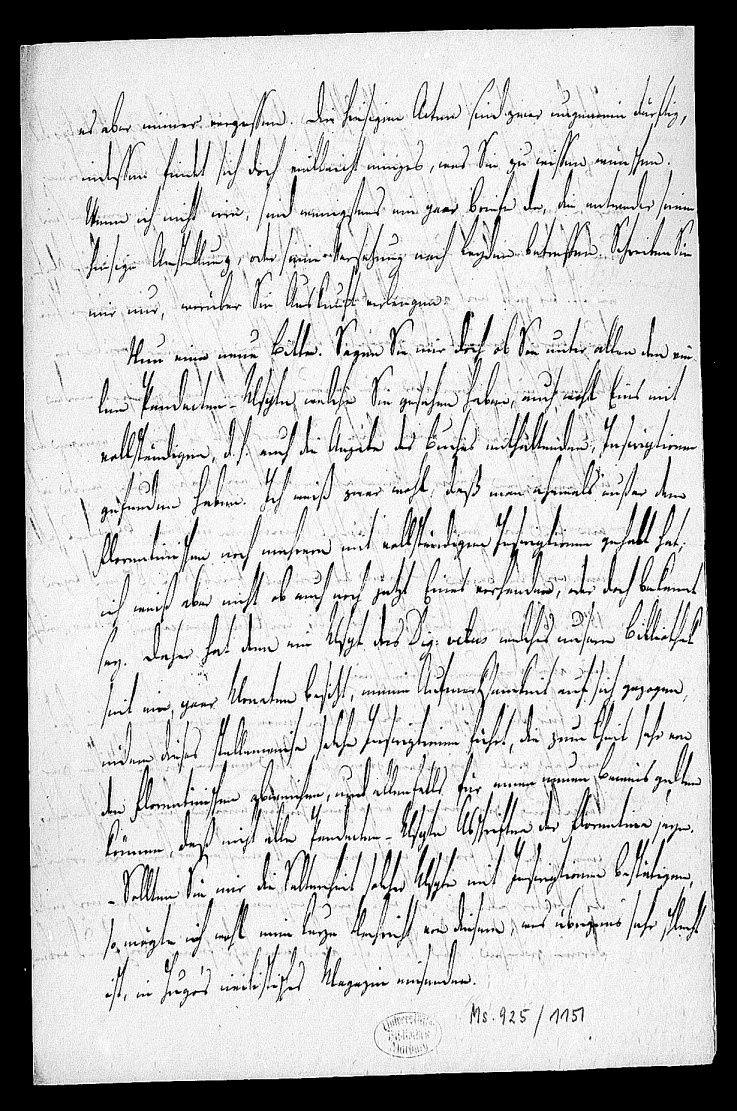 es aber immer vergessen. Die hiesigen Acten sind zwar ungemein dürftig,
indessen findet sich doch vielleicht einiges, was Sie zu wissen wünschen.
Wenn ich nicht irre, sind wenigstens ein paar Briefe da, die entweder seine
hiesige Anstellung, oder seine Versetzung nach Leyden betreffen. Schreiben Sie
mir nur, worüber Sie Auskunft verlangen.
Nun eine neue Bitte. Sagen Sie mir doch ob Sie unter allen den vie-
len Pandecten-Mscpten, welche Sie gesehen haben, auch wohl Eins mit
vollständigen, d. h. auch die Angabe des Buches enthaltenden, Inscriptionen
gefunden haben. Ich weiß zwar wohl, daß man ehemals außer dem
Florentinischen noch mehrere mit vollständigen Inscriptionen gehabt hat;
ich weiß aber nicht ob auch noch jetzt Eines vorhanden, oder doch bekannt
sey. Daher hat denn ein Mscpt des Dig. vetus welches unsere Bibliothek
seit ein paar Monaten besitzt, meine Aufmerksamkeit auf sich gezogen,
indem dieses stellenweise solche Inscriptionen führt, die zum Theil sehr von
den Florentinischen abweichen, und allenfalls für einen neuen Beweis gelten
können, daß nicht alle Pandecten-Mscpte Abschriften der Florentina seyen.
- Sollten Sie mir die Seltenheit solcher Mscpte mit Inscriptionen bestätigen,
so mögte ich wohl eine kurze Nachricht von diesem, was übrigens sehr schlecht
ist, in Hugo's civilistisches Magazin einsenden.
Ms. 925 / 1151
Universitäts
Bibliothek
Marburg